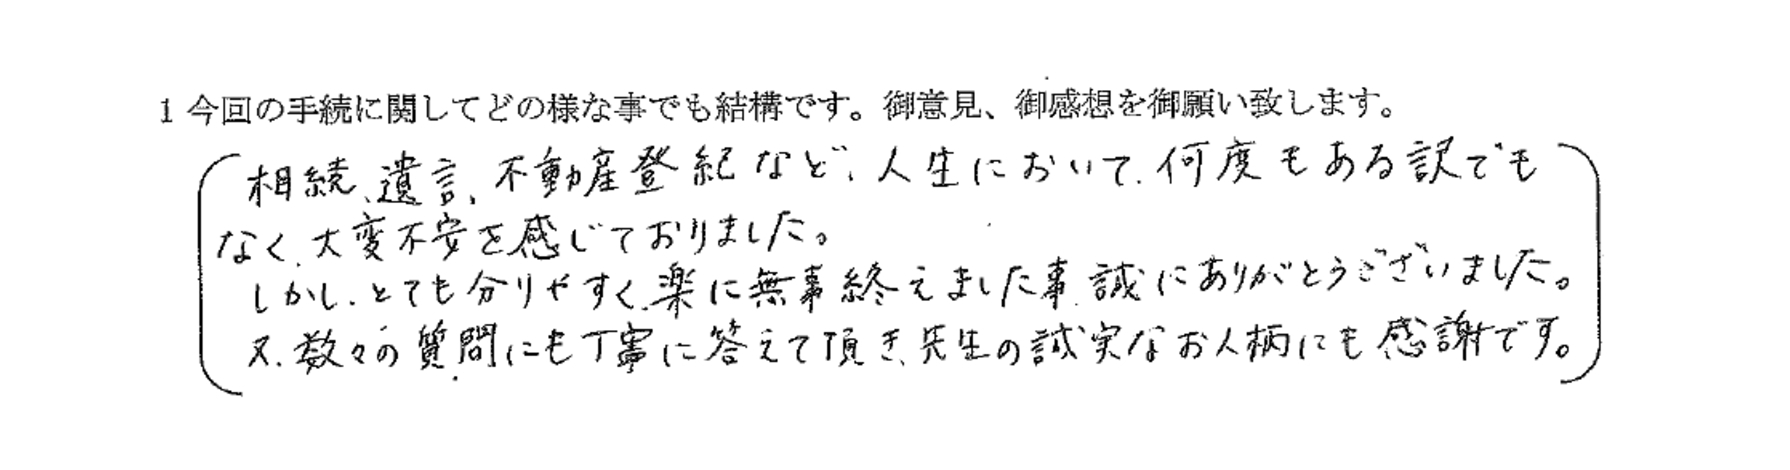 1 今回の手続に関してどの様な事でも結構です。御意見、御感想を御願い致します。
相続、遺言、不動産登紀など、人生において、何度もある訳でも
なく、大変不安を感じておりました。
しかし、とても分りやすく、楽に無事終えました事、誠にありがとうございました。
又、数々の質問にも丁寧に答えて頂き、先生の誠実なお人柄にも感謝です。